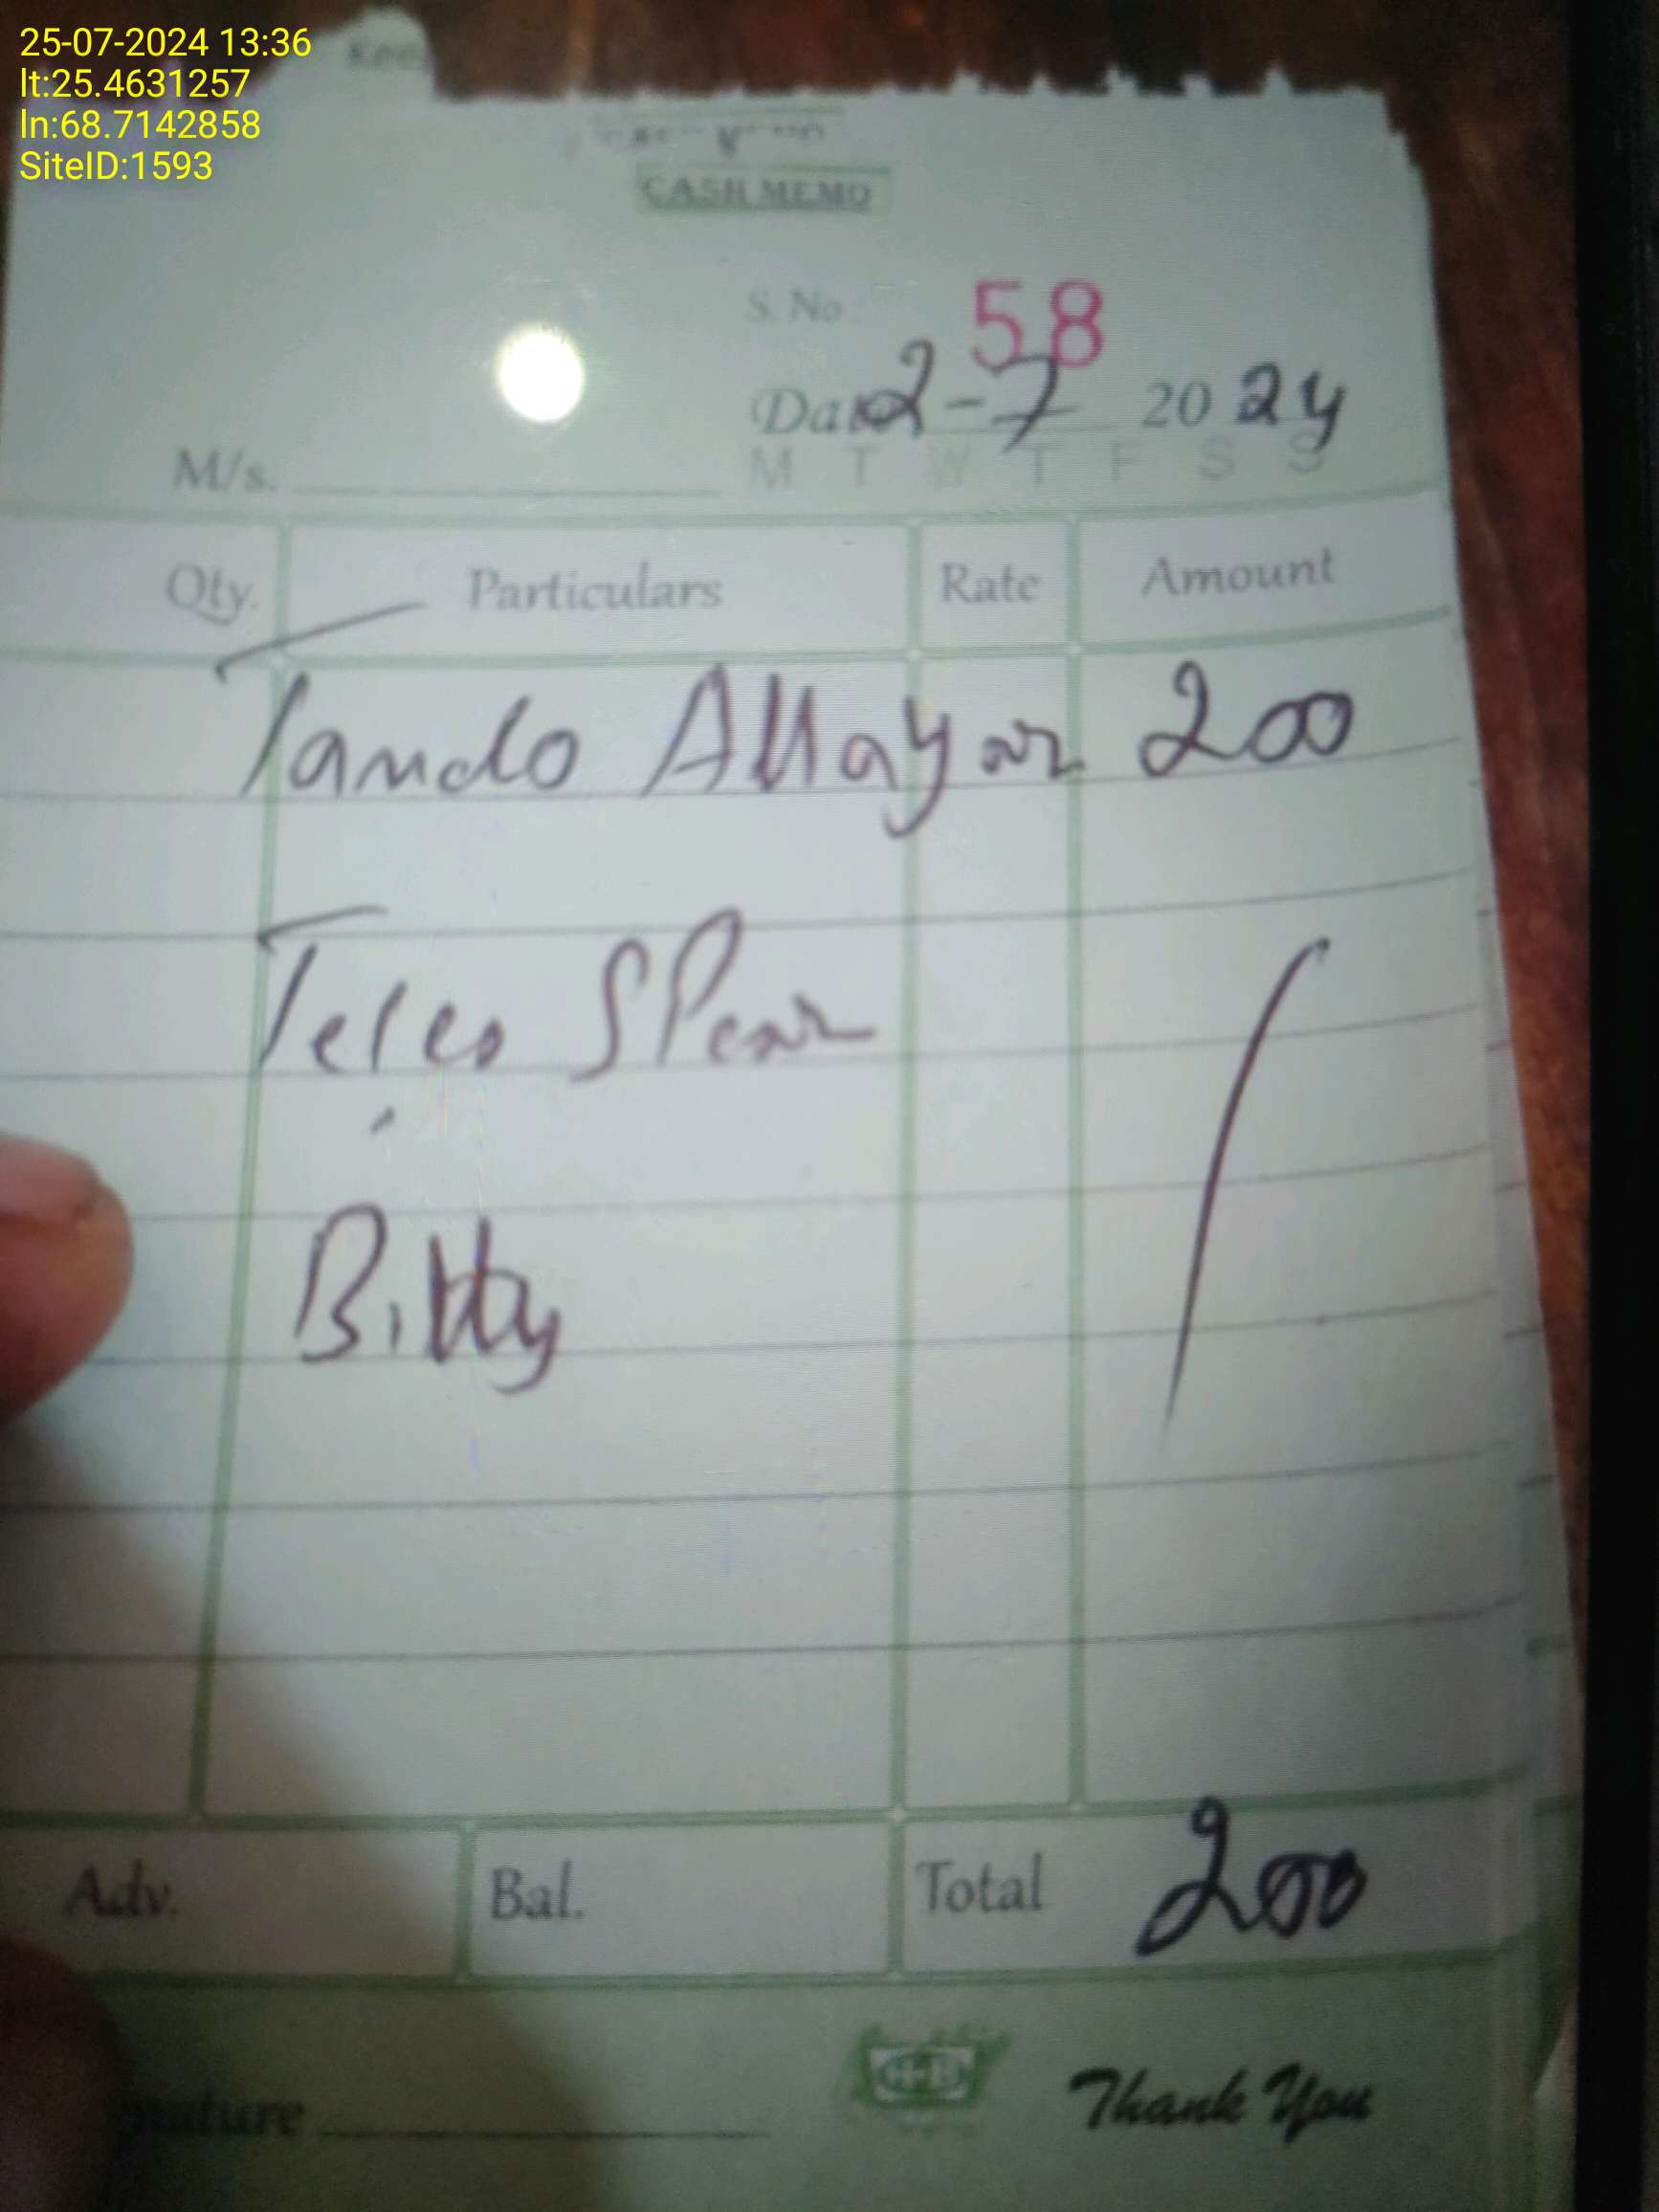 25-07-2024 13:36
lt:25.4631257
ln:68.7142858
SiteID:1593
CASH MEMO
S. No 58
Date 2-7 2024
M/s.
M T W T F S S
Qty. Particulars Rate Amount
Tando Allayar 200
Teles
Adv. Bal. Total 200
Thank You